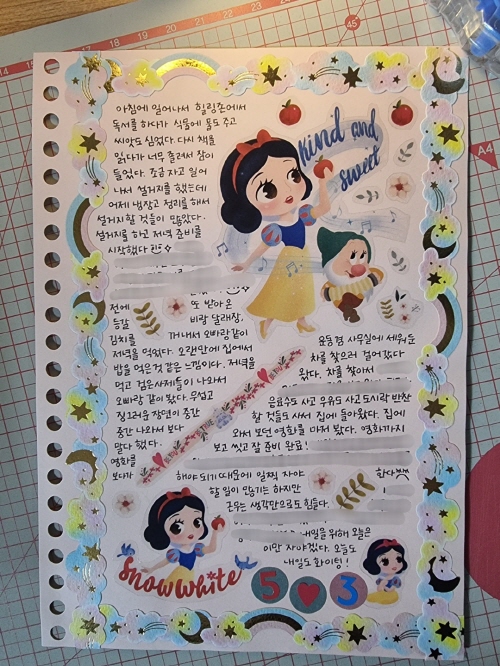 아침에 일어나서 힐링존에서
독서를 하다가 식물에 물도 주고
씨앗도 심었다. 다시 책을
읽다가 너무 졸려서 잠이
들었다. 조금 자고 일어
나서 설거지를 했는데
어제 냉장고 정리를 해서
설거지할 것들이 많았다.
설거지를 하고 저녁 준비를
시작했다
Kind and
Sweet
전에
또 받아온
들길
비람 달래장,
김치를
꺼내서 오빠랑같이
저녁을 먹었다. 오랜만에 집에서
밥을 먹은것 같은 느낌이다. 저녁을
먹고 검은사제들이 나와서
오빠랑 같이 봤다. 무섭고
징그러운 장면이 중간
중간 나와서 보다
말다 했다.
영화를
보다가
사무실에 세워둔
차를 찾으러 걸어갔다
왔다. 차를 찾아서
음료수도 사고 우유도 사고 도시락 반찬
할 것들도 사서 집에 돌아왔다. 집에
와서 보던 영화를 마저 봤다. 영화까지
보고 씻고 잘 준비 완료!
해야 되기 때문에 일찍 자야
한다
할 일이 많기는 하지만
근무는 생각만으로도 힘들다.
내일을 위해 오늘은
이만 자야겠다. 오늘도
내일도 화이팅!
Snow White
503
A4
14 15 16 17 18 19 20
45°